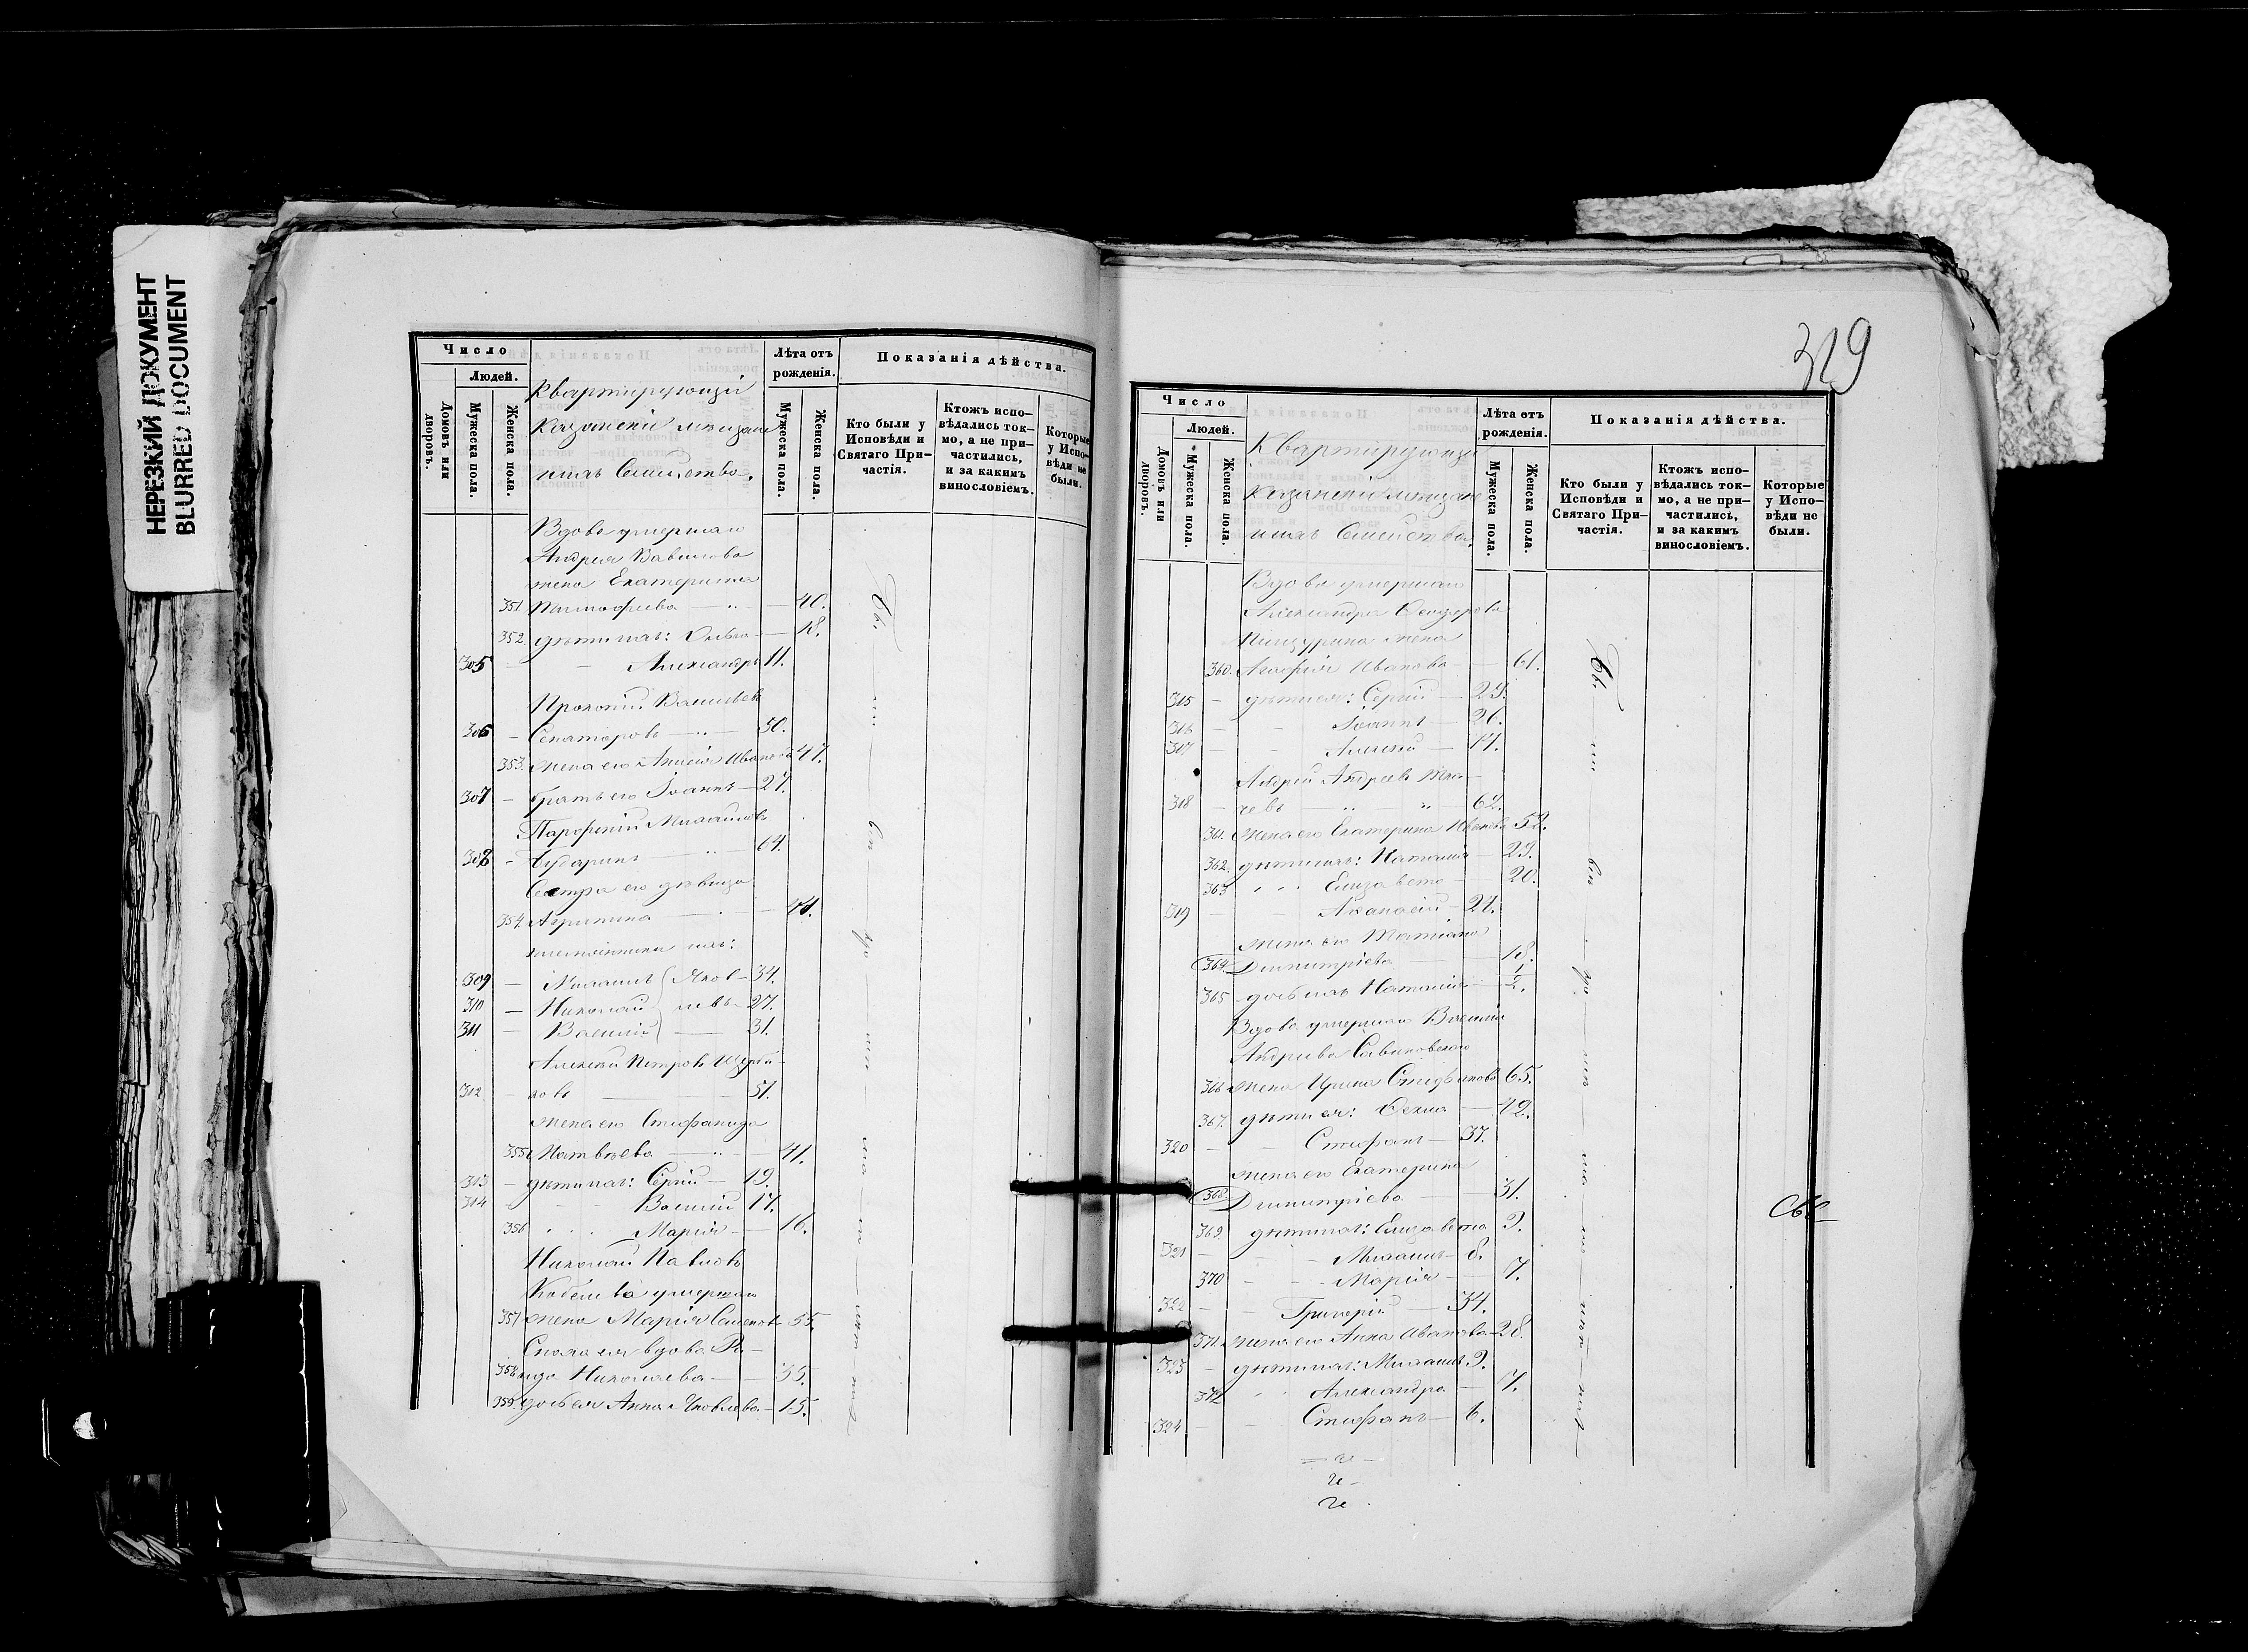 НЕРЕЗКИЙ ДОКУМЕНТ
BLURRED DOCUMENT
Число
Людей.
Домовъ или дворовъ.
Мужеска пола.
Женска пола.
Квартирующiи
Казанскiи мещане
ихъ Семейства.
Лѣта отъ рожденiя.
Мужеска пола.
Женска пола.
Показанiя дѣйства.
Кто были у Исповѣди и Святаго При-частiя.
Ктожъ испо-вѣдались ток-мо, а не при-частились, и за какимъ винословiемъ.
Которые у Испо-вѣди не были.
Вдова умершаго
Андрея Вавилова
жена Екатерина
351 Тимофеева 40.
352 дѣти ихъ: Ольга 18.
305 Александръ 11.
Прокопiй Васильевъ
306 Сенаторовъ 50.
353. жена его Анисiя Иванова 47.
307 братъ его Iоаннъ 27.
Парфенiй Михайловъ
308 64.
Сестра его дѣвица
354. Агрипина 44.
племянники ихъ:
309 Михаилъ Яков- 34.
310 Николай левы 27.
311 Василiй 31.
Алексѣй Петровъ
312 ковъ 51.
жена его Стефанида
355 Матвѣева 41.
313 дѣти ихъ: Сергiй 19.
314 Василiй 17.
356 Марiя 16.
Николай Павловъ
Кобелева умершаго
357 жена Марiя Семенов. 55.
Сноха ея вдова Ра-
358 ида Николаева 35.
359. дочь ея Анна Яковлева 15.
319
Число
Людей.
Домовъ или дворовъ.
Мужеска пола.
Женска пола.
Квартирующiи
Казанскiи мещане
ихъ Семейства.
Лѣта отъ рожденiя.
Мужеска пола.
Женска пола.
Показанiя дѣйства.
Кто были у Исповѣди и Святаго При-частiя.
Ктожъ испо-вѣдались ток-мо, а не при-частились, и за какимъ винословiемъ.
Которые у Испо-вѣди не были.
Вдова умершаго
Александра Феодорова
жена
360. Агафiя Иванова 61.
315 дѣти ея: Сергiй 29.
316 Iоаннъ 26.
317 Алексѣй 14.
Андрей Андреевъ Тка-
318 чевъ 62.
361. жена его Екатерина Иванова 52.
362. дѣти ихъ: Наталiя 29.
363 Елизавета 20.
319 Афанасiй 21.
жена его Татiана
364. Димитрiева 18.
365 дочь ихъ Наталiя 1/2.
Вдова умершаго Василiя
Андреева Савиновскаго
366 жена Ирина Стефанова 65.
367. дѣти ея: Фекла 42.
320 Стефанъ 37.
жена его Екатерина
368. Димитрiева 31.
369. дѣти ихъ: Елизавета 9.
321 Михаилъ 8.
370 Марiя 7.
322 Григорiй 34.
371. жена его Анна Иванова 28.
323 дѣти ихъ: Михаилъ 9.
372 Александра 7.
324 Стефанъ 6.